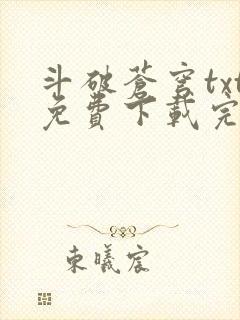 斗破蒼穹txt
免費下載完
東曦宸